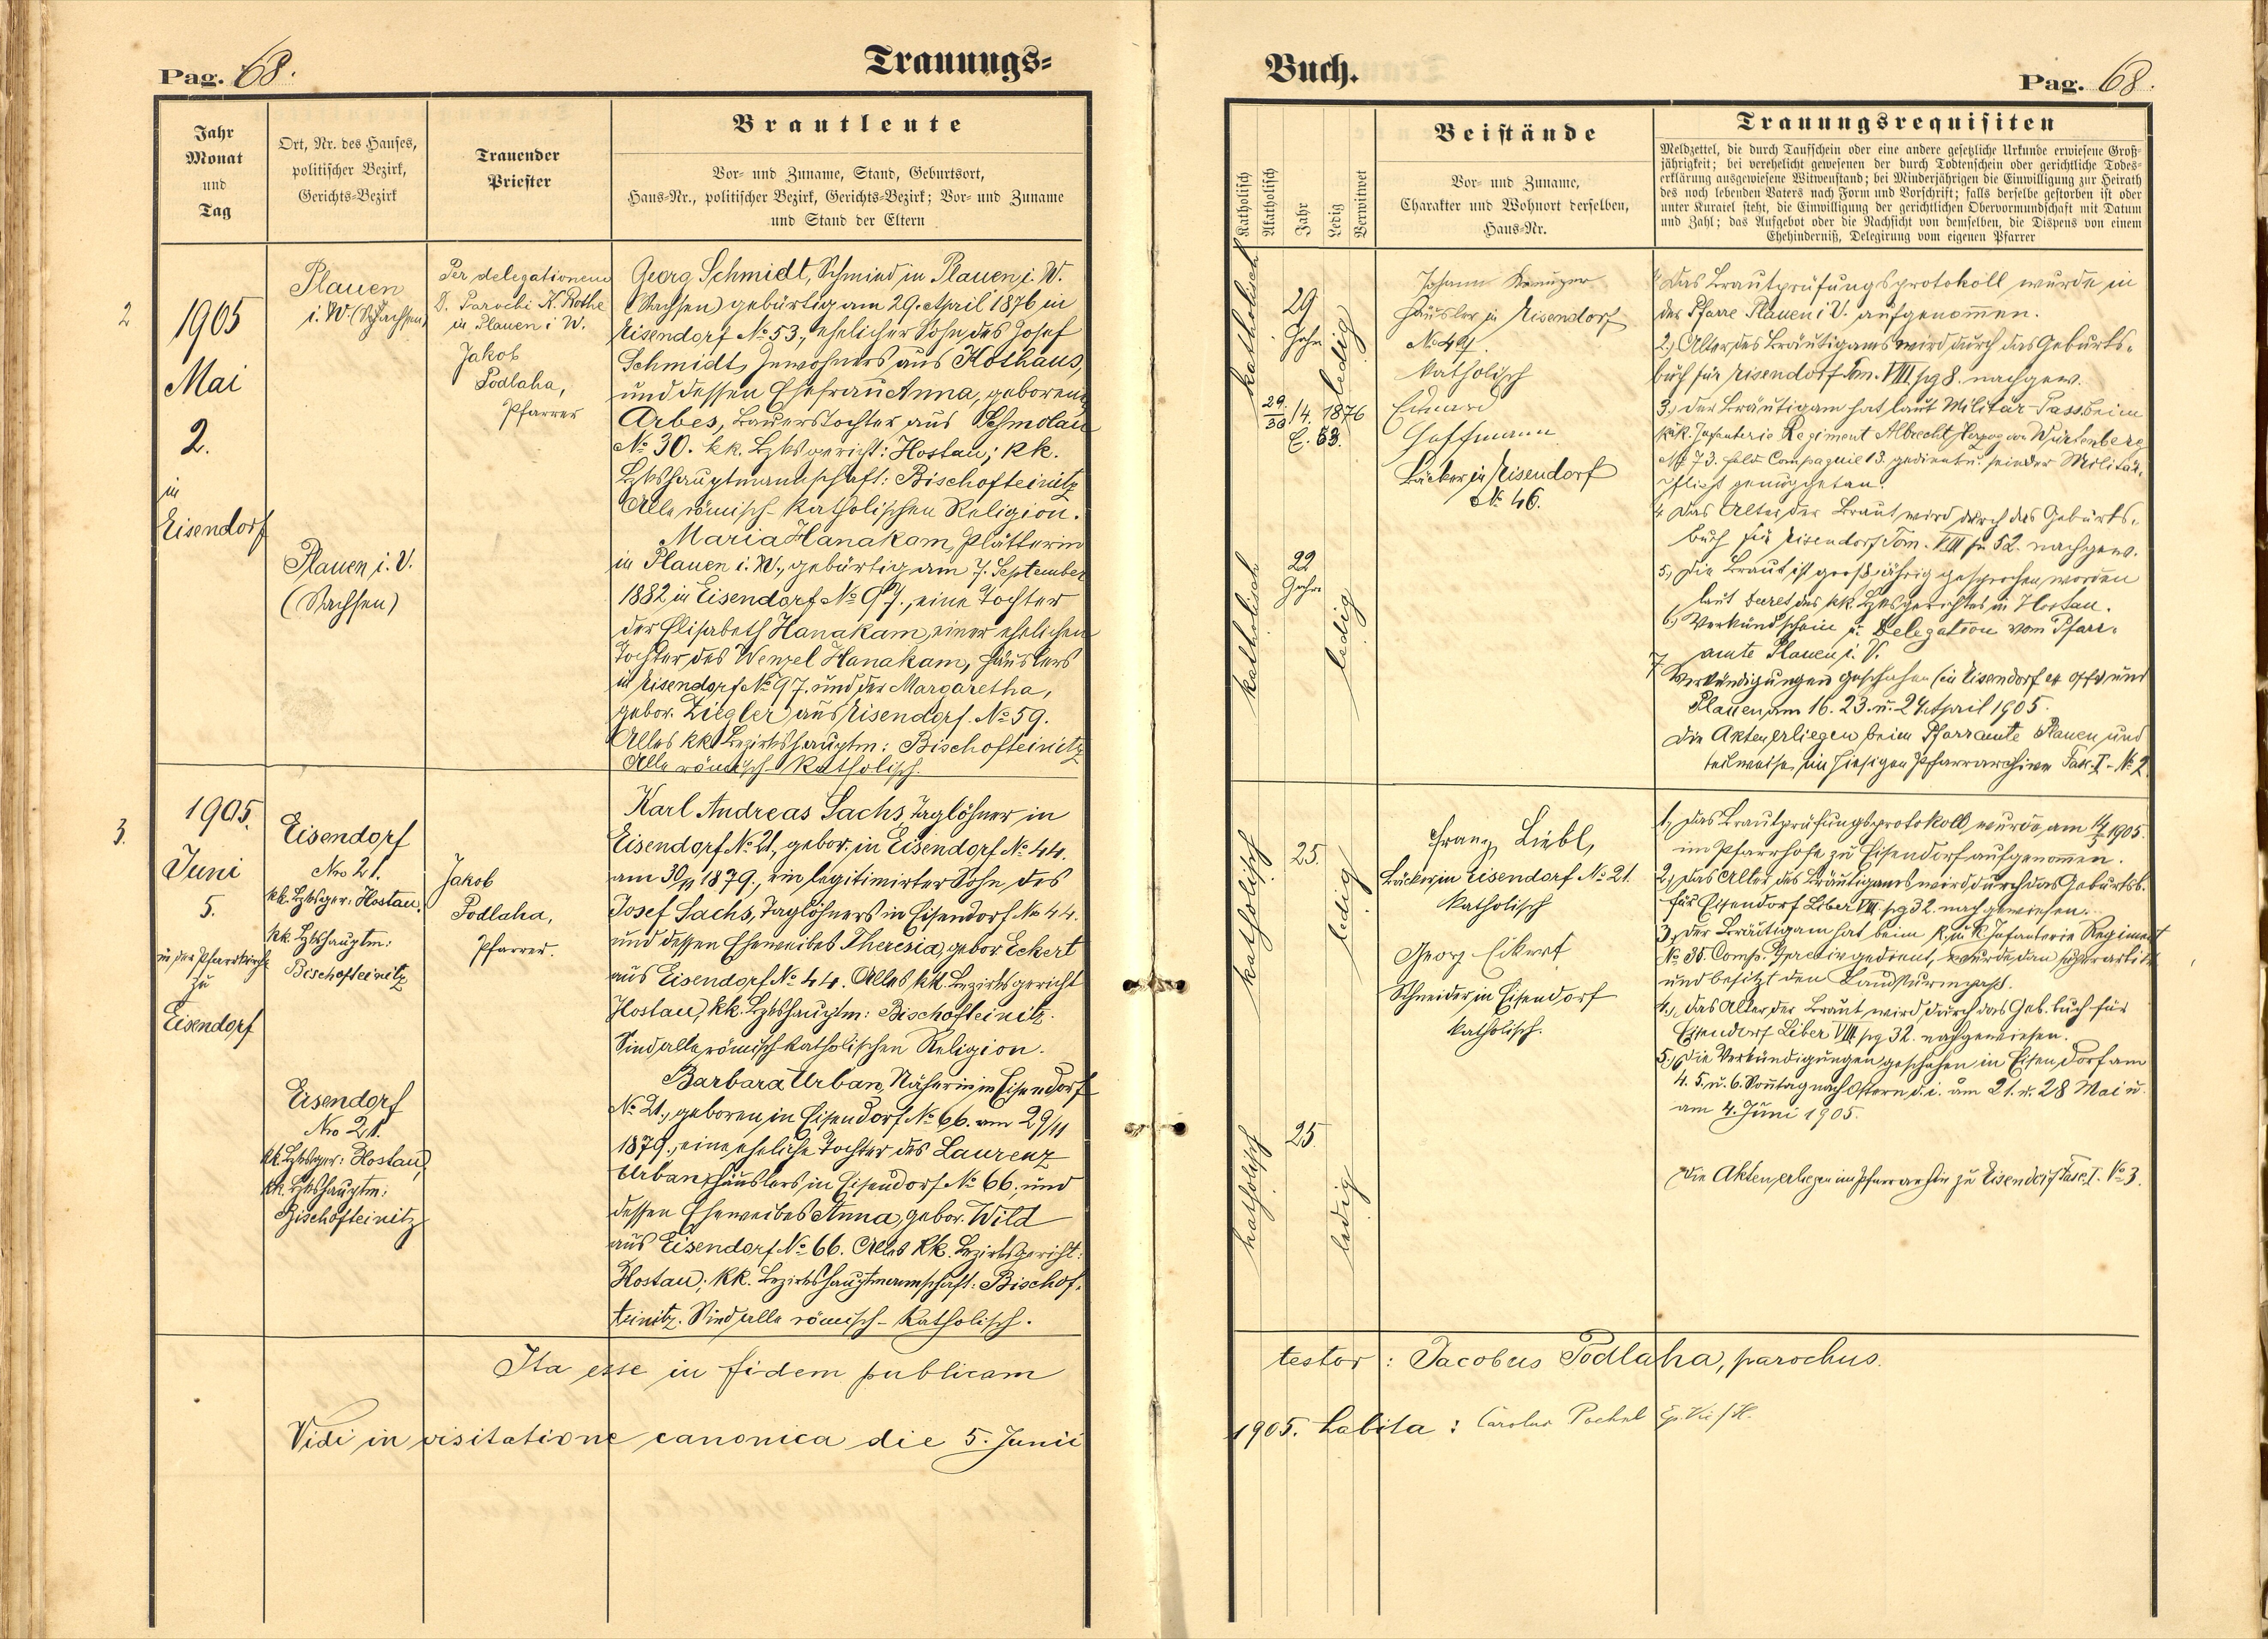 Pag. 68.
Trauungs=
Jahr
Monat
und
Tag
Ort, Nr. des Hauses,
politischer Bezirk,
Gerichts-Bezirk
Trauender
Priester
Brautleute
Vor- und Zuname, Stand, Geburtsort,
Haus-Nr., politischer Bezirk, Gerichts-Bezirk; Vor- und Zuname
und Stand der Eltern
2
1905
Mai
2.
in
Eisendorf
Plauen
i. V. (Sachsen)
Per delegationem
D. Parochi K. Rothe
in Plauen i V.
Jakob
Podlaha,
Pfarrer
Georg Schmidt, Schmied in Plauen i. V.
(Sachsen) gebürtig am 29. April 1876 in
Eisendorf No 53., ehelicher Sohn des Josef
Schmidt, Inwohners aus Kothaus,
und dessen Ehefrau Anna, geborene
Arbes, Bauerstochter aus Schmolau
No 30. kk. Bzksgericht: Hostau; kk.
Bzkshauptmannschaft: Bischofteinitz
Alle römisch-katholischen Religion.
Plauen i. V.
(Sachsen)
Maria Hanakam, Plätterin
in Plauen i. V., gebürtig am 7. September
1882 in Eisendorf No 97., eine Tochter
der Elisabeth Hanakam, einer ehelichen
Tochter des Wenzel Hanakam, Häuslers
in Eisendorf No 97. und der Margaretha,
gebor. Ziegler aus Eisendorf. No 59.
Alles kk Bezirkshauptm: Bischofteinitz
Alle römisch-katholisch.
3.
1905.
Juni
5.
in der Pfarrkirche
zu
Eisendorf
Eisendorf
Nro 21.
kk. Bzksger: Hostau.
kk. Bzkshauptm:
Bischofteinitz
Jakob
Podlaha,
Pfarrer.
Karl Andreas Sachs, Taglöhner in
Eisendorf No 21, gebor. in Eisendorf No 44.
am 30/11 1879., ein legitimirter Sohn des
Josef Sachs, Taglöhners in Eisendorf No 44.
und dessen Eheweibes Theresia, gebor. Eckert
aus Eisendorf No 44. Alles kk. Bezirksgericht
Hostau, kk. Bzkshauptm: Bischofteinitz.
Sind alle römisch katholischen Religion.
Eisendorf
Nro 21.
kk. Bzksger: Hostau,
kk. Bzkshauptm:
Bischofteinitz
Barbara Urban, Näherin in Eisendorf
No 21., geboren in Eisendorf No 66. am 29/11
1879., eine eheliche Tochter des Laurenz
Urban, Häuslers in Eisendorf No 66., und
dessen Eheweibes Anna, gebor. Wild
aus Eisendorf No 66. Alles kk. Bezirksgericht:
Hostau; kk. Bezirkshauptmannschaft: Bischof=
teinitz. Sind alle römisch-katholisch.
Ita esse in fidem publicam
Vidi in visitatione canonica die 5. Junii
Buch.
Pag. 68.
Katholisch
Akatholisch
Jahr
Ledig
Verwitwet
Beistände
Vor- und Zuname,
Charakter und Wohnort derselben,
Haus-Nr.
Trauungsrequisiten
Meldzettel, die durch Taufschein oder eine andere gesetzliche Urkunde erwiesene Groß-
jährigkeit; bei verehelicht gewesenen der durch Todtenschein oder gerichtliche Todes-
erklärung ausgewiesene Witwenstand; bei Minderjährigen die Einwilligung zur Heirath
des noch lebenden Vaters nach Form und Vorschrift; falls derselbe gestorben ist oder
unter Kuratel steht, die Einwilligung der gerichtlichen Obervormundschaft mit Datum
und Zahl; das Aufgebot oder die Nachsicht von demselben, die Dispens von einem
Ehehinderniß, Delegirung vom eigenen Pfarrer
katholisch
29
Jahre
ledig
29./30 /4. 1876
E. 53.
Johann
Häusler in Eisendorf
katholisch
Eduard
Hoffmann
Bäcker in Eisendorf
No 46.
1 Das Brautprüfungsprotokoll wurde in
der Pfarre Plauen i V. aufgenommen.
2, Alter des Bräutigams wird durch das Geburts=
buch für Eisendorf Tom. VIII pg 8. nachgew.
3, Der Bräutigam hat laut Militär-Pass beim
k.k. Infanterie Regiment Albrecht Herzog von Würtenberg
No 73. Feld-Compagnie 13. gedient u. seiner Militär=
pflicht genüge getan.
4 Das Alter der Braut wird durch das Geburts=
buch für Eisendorf Tom. VIII fo 52. nachgew.
5, Die Braut ist grossjährig gesprochen worden
laut Decret des kk. Bzksgerichtes in Hostau.
6, Verkündschein u. Delegation vom Pfarr=
amte Plauen i. V.
7 Verkündigungen geschehen (in Eisendorf und
Plauen am 16. 23. u. 24 April 1905.
Die Akten erliegen beim Pfarramte Plauen und
teilweise im hiesigen Pfarrarchive Fasc. I - No 2.
katholisch
22
Jahre
ledig
katholisch
25.
ledig
Franz Liebl,
Bäcker in Eisendorf No 21.
katholisch
Georg Eckert
Schneider in Eisendorf
katholisch.
1, Das Brautprüfungsprotokoll wurde am 14/5 1905.
im Pfarrhofe zu Eisendorf aufgenommen.
2, Das Alter des Bräutigams wird durch das Geburtsb.
für Eisendorf Liber VIII pg 32. nachgewiesen.
3, Der Bräutigam hat beim k. u. k. Infanterie Regiment
No 35. gedient, wurde dan
und besitzt den Landsturmpass.
4., Das Alter der Braut wird durch das Geb. buch für
Eisendorf Liber VIII pg 32. nachgewiesen.
5., Die Verkündigungen geschahen in Eisendorf am
4. 5. u. 6. Sonntag nach Ostern d. i. am 21. u. 28 Mai u.
am 4. Juni 1905.
Die Akten erliegen im Pfarrarchiv zu Eisendorf Fasc. I. No 3.
katholisch
25.
ledig
testor: Jacobus Podlaha, parochus.
1905. habita: Carolus